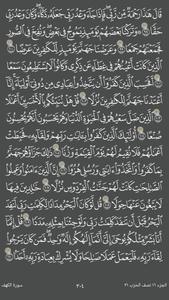 قَالَ هَٰذَا رَحْمَةٌ مِّن رَّبِّي فَإِذَا جَاءَ وَعْدُ رَبِّي جَعَلَهُ دَكَّاءَ وَكَانَ وَعْدُ رَبِّي
حَقًّا ۝٩٨ وَتَرَكْنَا بَعْضَهُمْ يَوْمَئِذٍ يَمُوجُ فِي بَعْضٍ وَنُفِخَ فِي الصُّورِ
فَجَمَعْنَٰهُمْ جَمْعًا ۝٩٩ وَعَرَضْنَا جَهَنَّمَ يَوْمَئِذٍ لِّلْكَٰفِرِينَ عَرْضًا ۝١٠٠
الَّذِينَ كَانَتْ أَعْيُنُهُمْ فِي غِطَاءٍ عَن ذِكْرِي وَكَانُوا لَا يَسْتَطِيعُونَ سَمْعًا
۝١٠١ أَفَحَسِبَ الَّذِينَ كَفَرُوا أَن يَتَّخِذُوا عِبَادِي مِن دُونِي أَوْلِيَاءَ إِنَّا
أَعْتَدْنَا جَهَنَّمَ لِلْكَٰفِرِينَ نُزُلًا ۝١٠٢ قُلْ هَلْ نُنَبِّئُكُم بِالْأَخْسَرِينَ أَعْمَٰلًا
۝١٠٣ الَّذِينَ ضَلَّ سَعْيُهُمْ فِي الْحَيَوٰةِ الدُّنْيَا وَهُمْ يَحْسَبُونَ أَنَّهُمْ يُحْسِنُونَ
صُنْعًا ۝١٠٤ أُولَٰئِكَ الَّذِينَ كَفَرُوا بِـَٔايَٰتِ رَبِّهِمْ وَلِقَائِهِ فَحَبِطَتْ
أَعْمَٰلُهُمْ فَلَا نُقِيمُ لَهُمْ يَوْمَ الْقِيَٰمَةِ وَزْنًا ۝١٠٥ ذَٰلِكَ جَزَاؤُهُمْ جَهَنَّمُ
بِمَا كَفَرُوا وَاتَّخَذُوا ءَايَٰتِي وَرُسُلِي هُزُوًا ۝١٠٦ إِنَّ الَّذِينَ ءَامَنُوا وَعَمِلُوا
الصَّٰلِحَٰتِ كَانَتْ لَهُمْ جَنَّٰتُ الْفِرْدَوْسِ نُزُلًا ۝١٠٧ خَٰلِدِينَ فِيهَا
لَا يَبْغُونَ عَنْهَا حِوَلًا ۝١٠٨ قُل لَّوْ كَانَ الْبَحْرُ مِدَادًا لِّكَلِمَٰتِ رَبِّي لَنَفِدَ
الْبَحْرُ قَبْلَ أَن تَنفَدَ كَلِمَٰتُ رَبِّي وَلَوْ جِئْنَا بِمِثْلِهِ مَدَدًا ۝١٠٩ قُلْ
إِنَّمَا أَنَا بَشَرٌ مِّثْلُكُمْ يُوحَىٰ إِلَيَّ أَنَّمَا إِلَٰهُكُمْ إِلَٰهٌ وَٰحِدٌ فَمَن كَانَ يَرْجُوا
لِقَاءَ رَبِّهِ فَلْيَعْمَلْ عَمَلًا صَٰلِحًا وَلَا يُشْرِكْ بِعِبَادَةِ رَبِّهِ أَحَدًا ۝١١٠
الجزء ١٦ نصف الحزب ٣١
٣٠٤
سورة الكهف